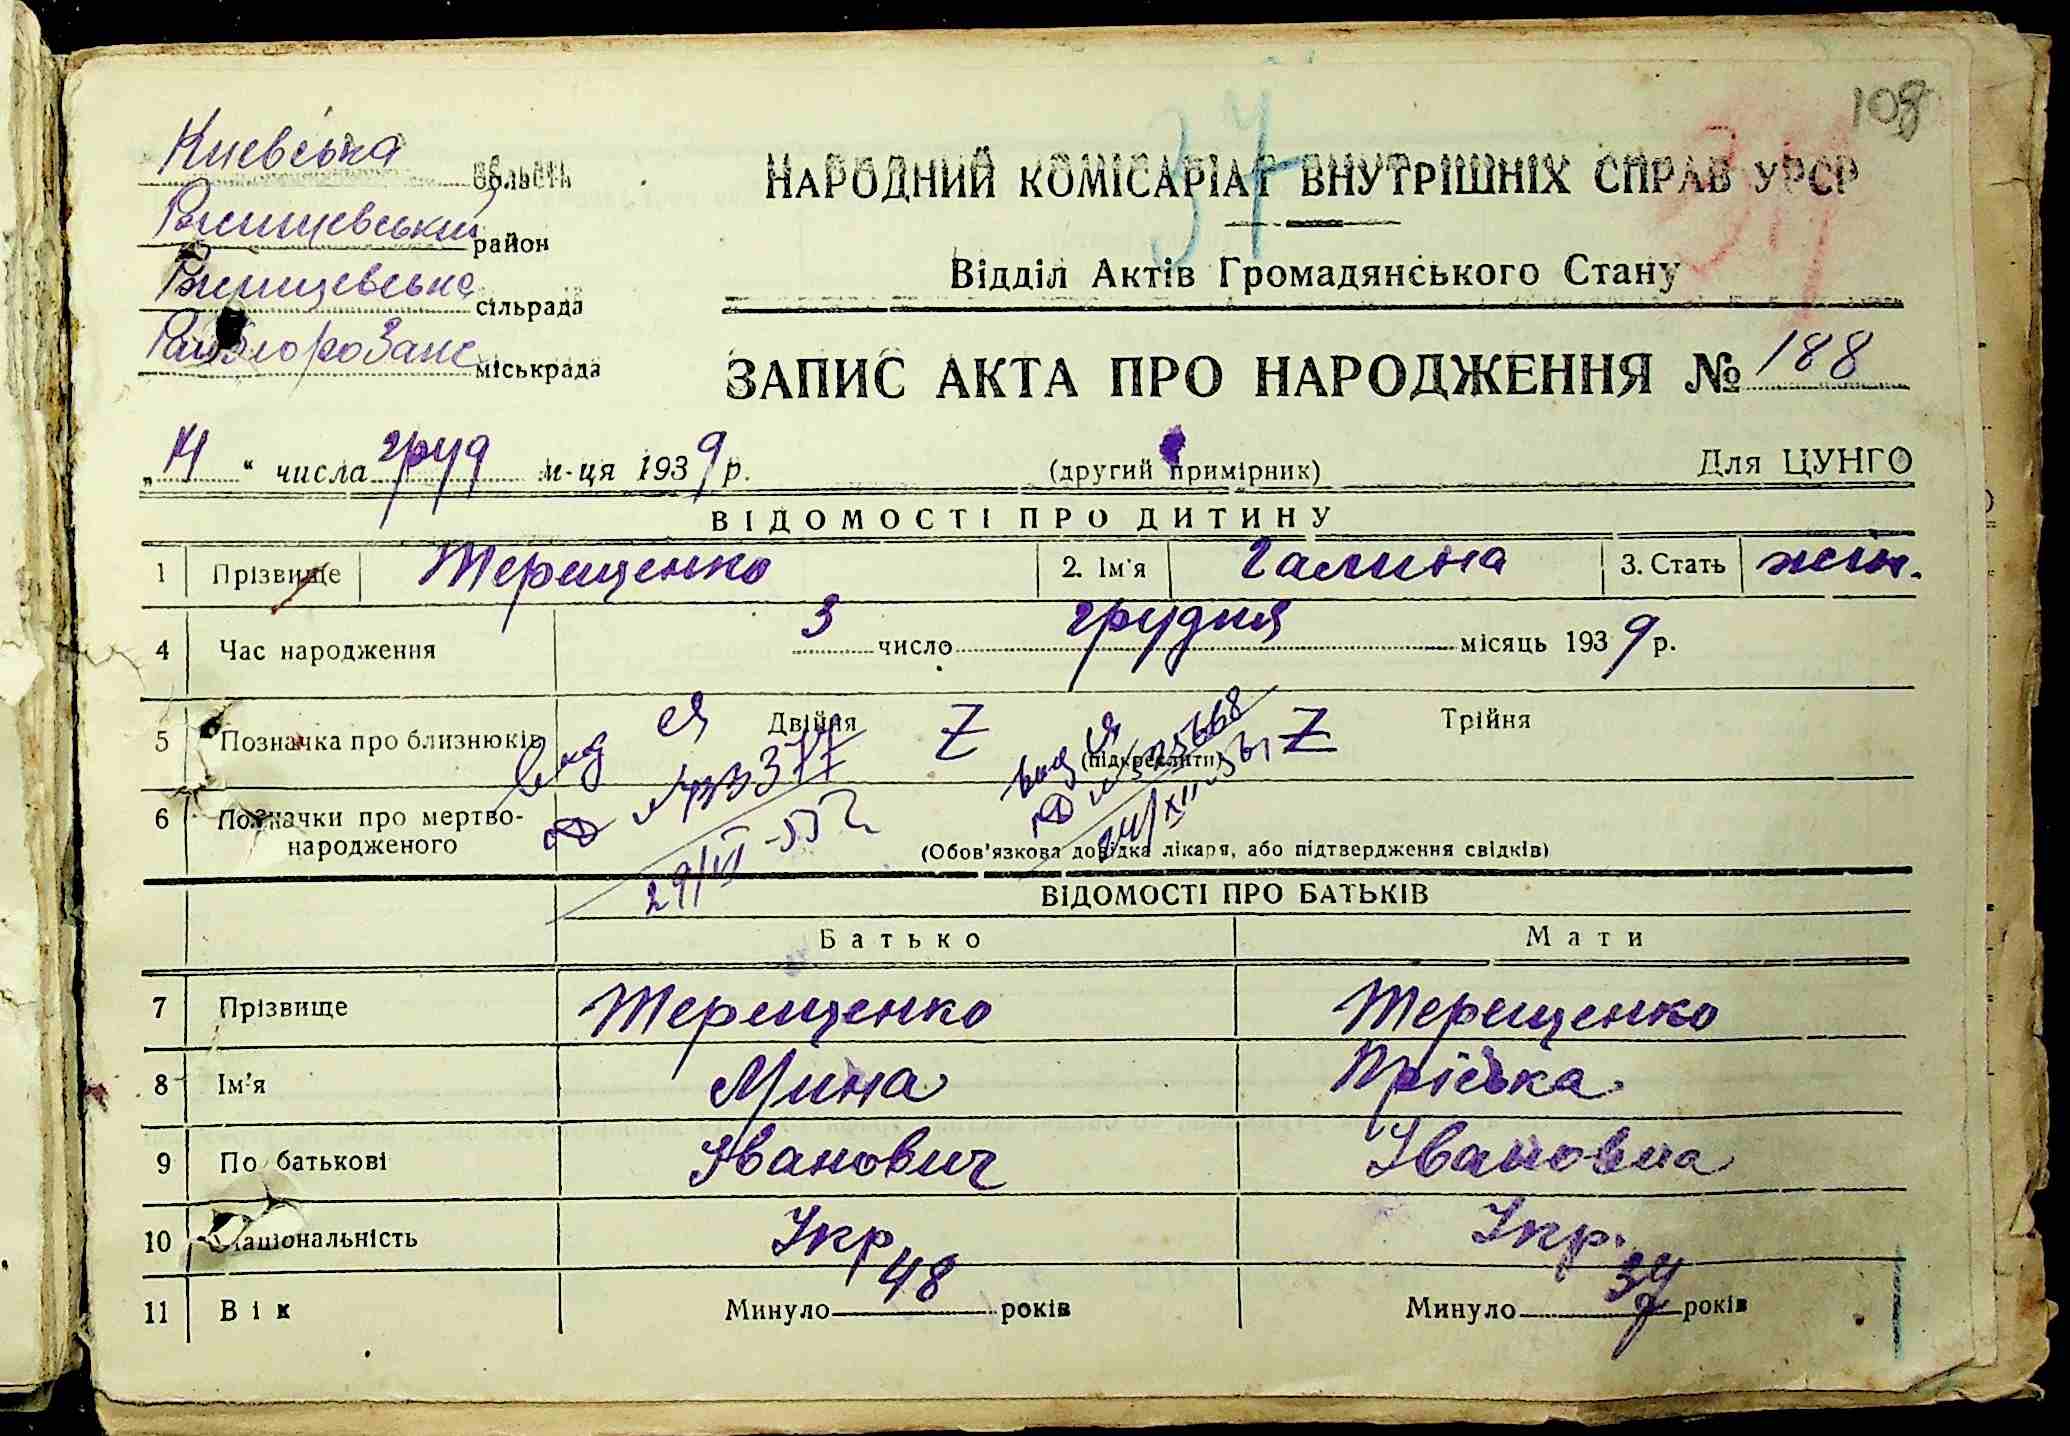 108
37
Киевська область
НАРОДНИЙ КОМІСАРІАТ ВНУТРІШНІХ СПРАВ УРСР
район
Відділ Актів Громадянського Стану
сільрада
міськрада
ЗАПИС АКТА ПРО НАРОДЖЕННЯ № 188
„14“ числа груд м-ця 1939 р. (другий примірник) Для ЦУНГО
ВІДОМОСТІ ПРО ДИТИНУ
1 Прізвище Терещенко 2. Ім'я Галина 3. Стать жін.
4 Час народження 3 число грудня місяць 1939 р.
5 Позначка про близнюків Двійня Z (підкреслити) Z Трійня
6 Позначки про мертво-
народженого
(Обов'язкова довідка лікаря, або підтвердження свідків)
ВІДОМОСТІ ПРО БАТЬКІВ
Батько Мати
7 Прізвище Терещенко Терещенко
8 Ім'я Мина Пріська
9 По батькові Іванович Івановна
10 Національність Укр Укр.
11 Вік Минуло 48 років Минуло років